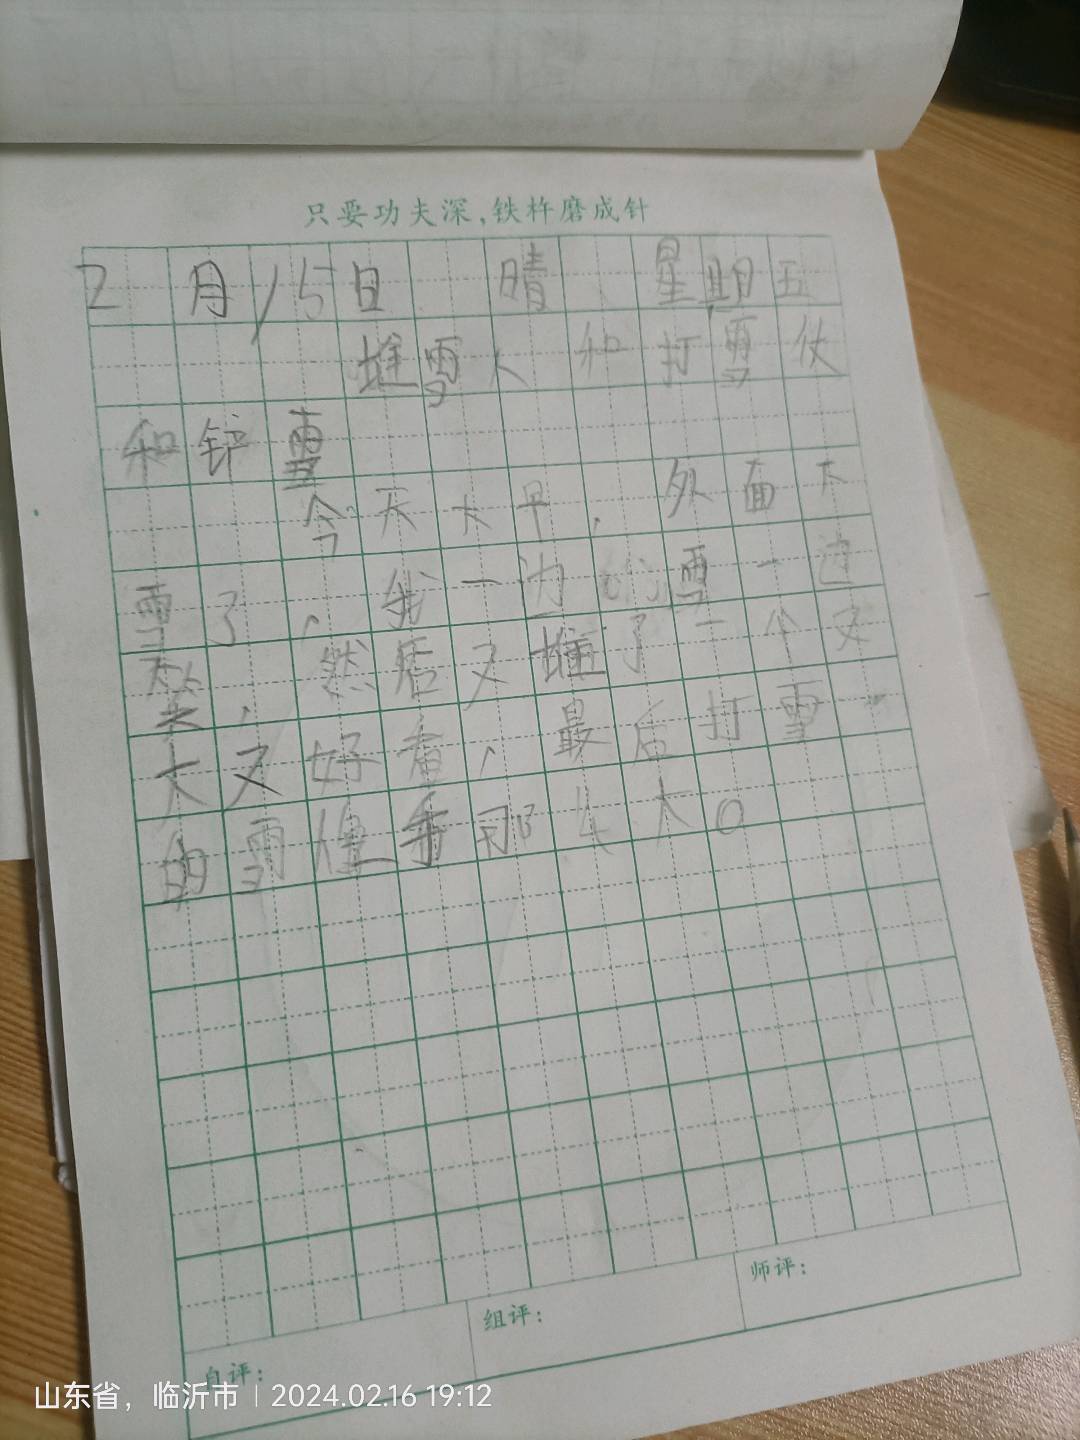 只要功夫深,铁杵磨成针
2月15日 晴 星期五
堆雪人和打雪仗
和铲雪
今天大早,外面下
雪了,我一边 雪一边
然后又堆了一个又
大又好看,最后打雪
的雪 那么大。
自评: 组评: 师评:
山东省,临沂市 | 2024.02.16 19:12